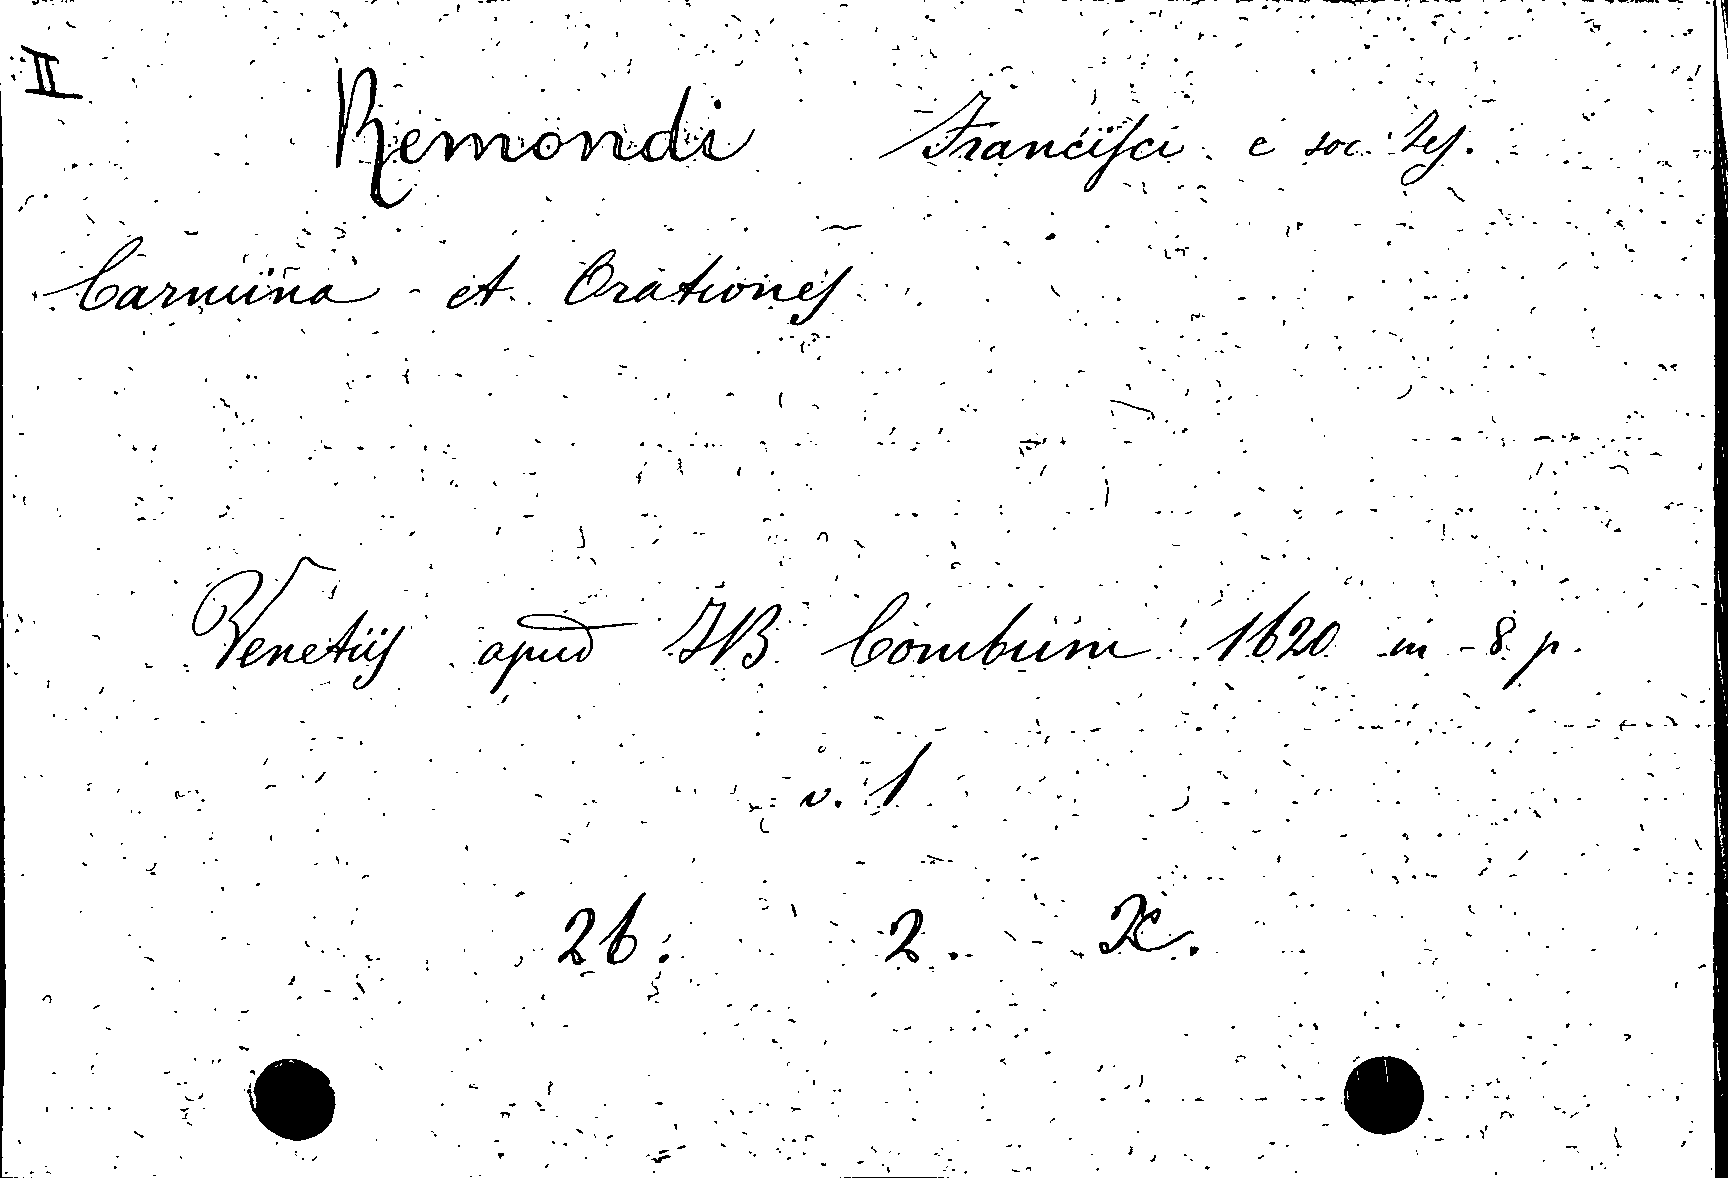 II
Remondi Francisci e soc. Jes.
Carmina et Orationes
Venetiis apud JB Combum 1620 in-8. p.
v. 1
26. 2. K.